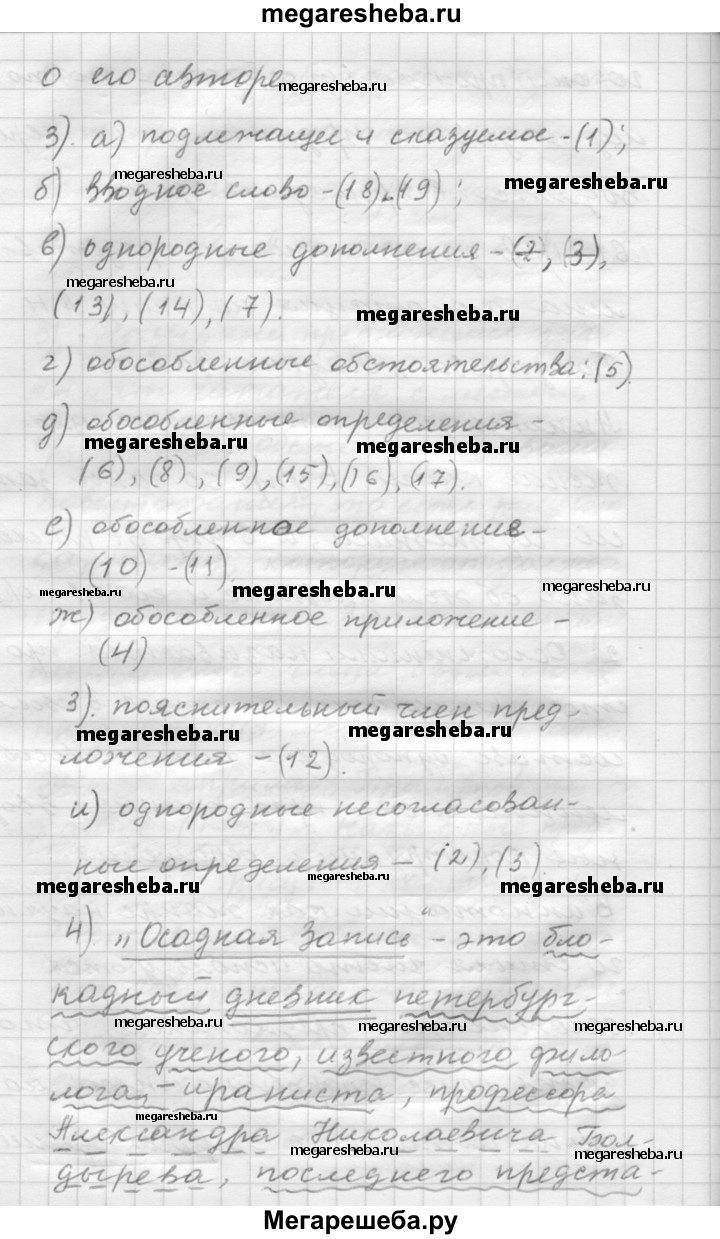 megaresheba.ru
о его авторе megaresheba.ru
3). а) подлежащее и сказуемое - (1);
megaresheba.ru
б) вводное слово - (18), (19); megaresheba.ru
в) однородные дополнения - (2), (3),
megaresheba.ru
(13), (14), (7). megaresheba.ru
г) обособленные обстоятельства: (5).
д) обособленные определения -
megaresheba.ru megaresheba.ru
(6), (8), (9), (15), (16), (17).
е) обособленное дополнение -
(10) - (11).
megaresheba.ru megaresheba.ru megaresheba.ru
ж) обособленное приложение -
(4)
з). пояснительный член пред-
megaresheba.ru megaresheba.ru
ложения - (12).
и) однородные несогласован-
ные определения - (2), (3).
megaresheba.ru megaresheba.ru megaresheba.ru
4) „Осадная Запись“ - это бло-
кадный дневник петербург-
megaresheba.ru megaresheba.ru megaresheba.ru
ского ученого, известного фило-
лога - ираниста, профессора
megaresheba.ru
Александра Николаевича Бол-
megaresheba.ru megaresheba.ru
дырева, последнего предста-
Мегарешеба.ру